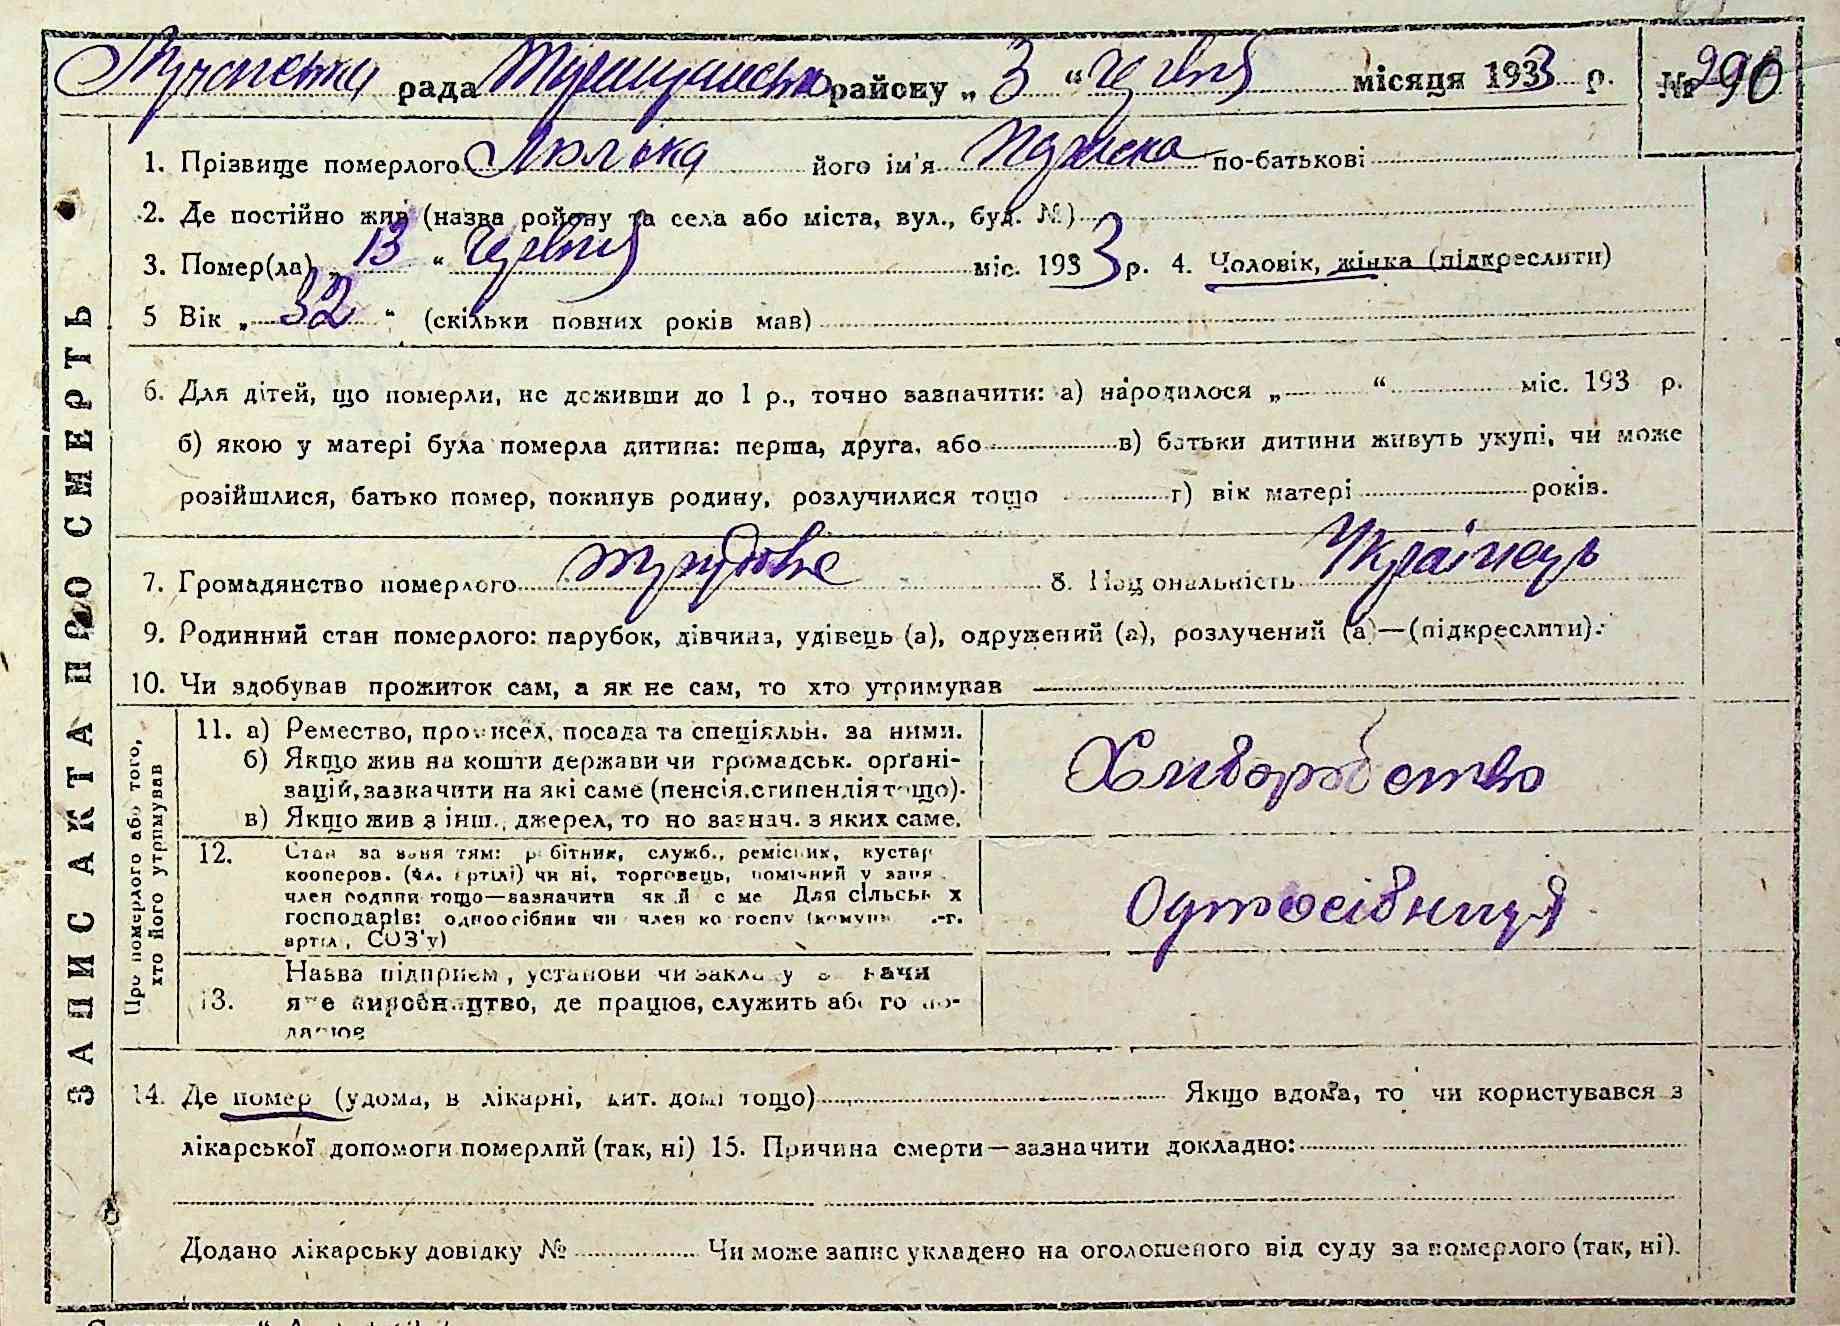 Лучанська рада Таращанського району „ 3 “ червня місяця 1933 р. № 290
1. Прізвище померлого його ім'я по-батькові
2. Де постійно жив (назва ройону та села або міста, вул., буд. №)
3. Помер(ла) „ 13 “ червня міс. 1933 р. 4. Чоловік, жінка (підкреслити)
5 Вік „ 32 “ (скільки повних років мав)
6. Для дітей, що померли, не доживши до 1 р., точно зазначити: а) народилося „ “ міс. 193 р.
б) якою у матері була померла дитина: перша, друга, або в) батьки дитини живуть укупі, чи може
розійшлися, батько помер, покинув родину, розлучилися тощо г) вік матері років.
7. Громадянство померлого трудове 8. Національність Українець
9. Родинний стан померлого: парубок, дівчина, удівець (а), одружений (а), розлучений (а)—(підкреслити).
10. Чи здобував прожиток сам, а як не сам, то хто утримував
ЗАПИС АКТА ПРО СМЕРТЬ
Про померлого або того,
хто його утримував
11. а) Ремество, промисел, посада та спеціяльн. за ними.
б) Якщо жив на кошти держави чи громадськ. орґані-
зацій, зазначити на які саме (пенсія, стипендія тощо).
в) Якщо жив з інш., джерел, то но зазнач. з яких саме.
Хліборобство
12. Стан за заняттям: робітник, служб., ремісник, кустар
кооперов. (чл. артілі) чи ні, торговець, помічний у заня
член родини тощо—зазначити який саме Для сільськ х
господарів: одноосібник чи член колгоспу (комуни .-г.
артіл, СОЗ'у)
Одноосібниця
13. Назва підприєм, установи чи закладу
яке виробництво, де працює, служить або
14. Де помер (удома, в лікарні, дит. домі тощо) Якщо вдома, то чи користувався з
лікарської допомоги померлий (так, ні) 15. Причина смерти—зазначити докладно:
Додано лікарську довідку № Чи може запис укладено на оголошеного від суду за померлого (так, ні).